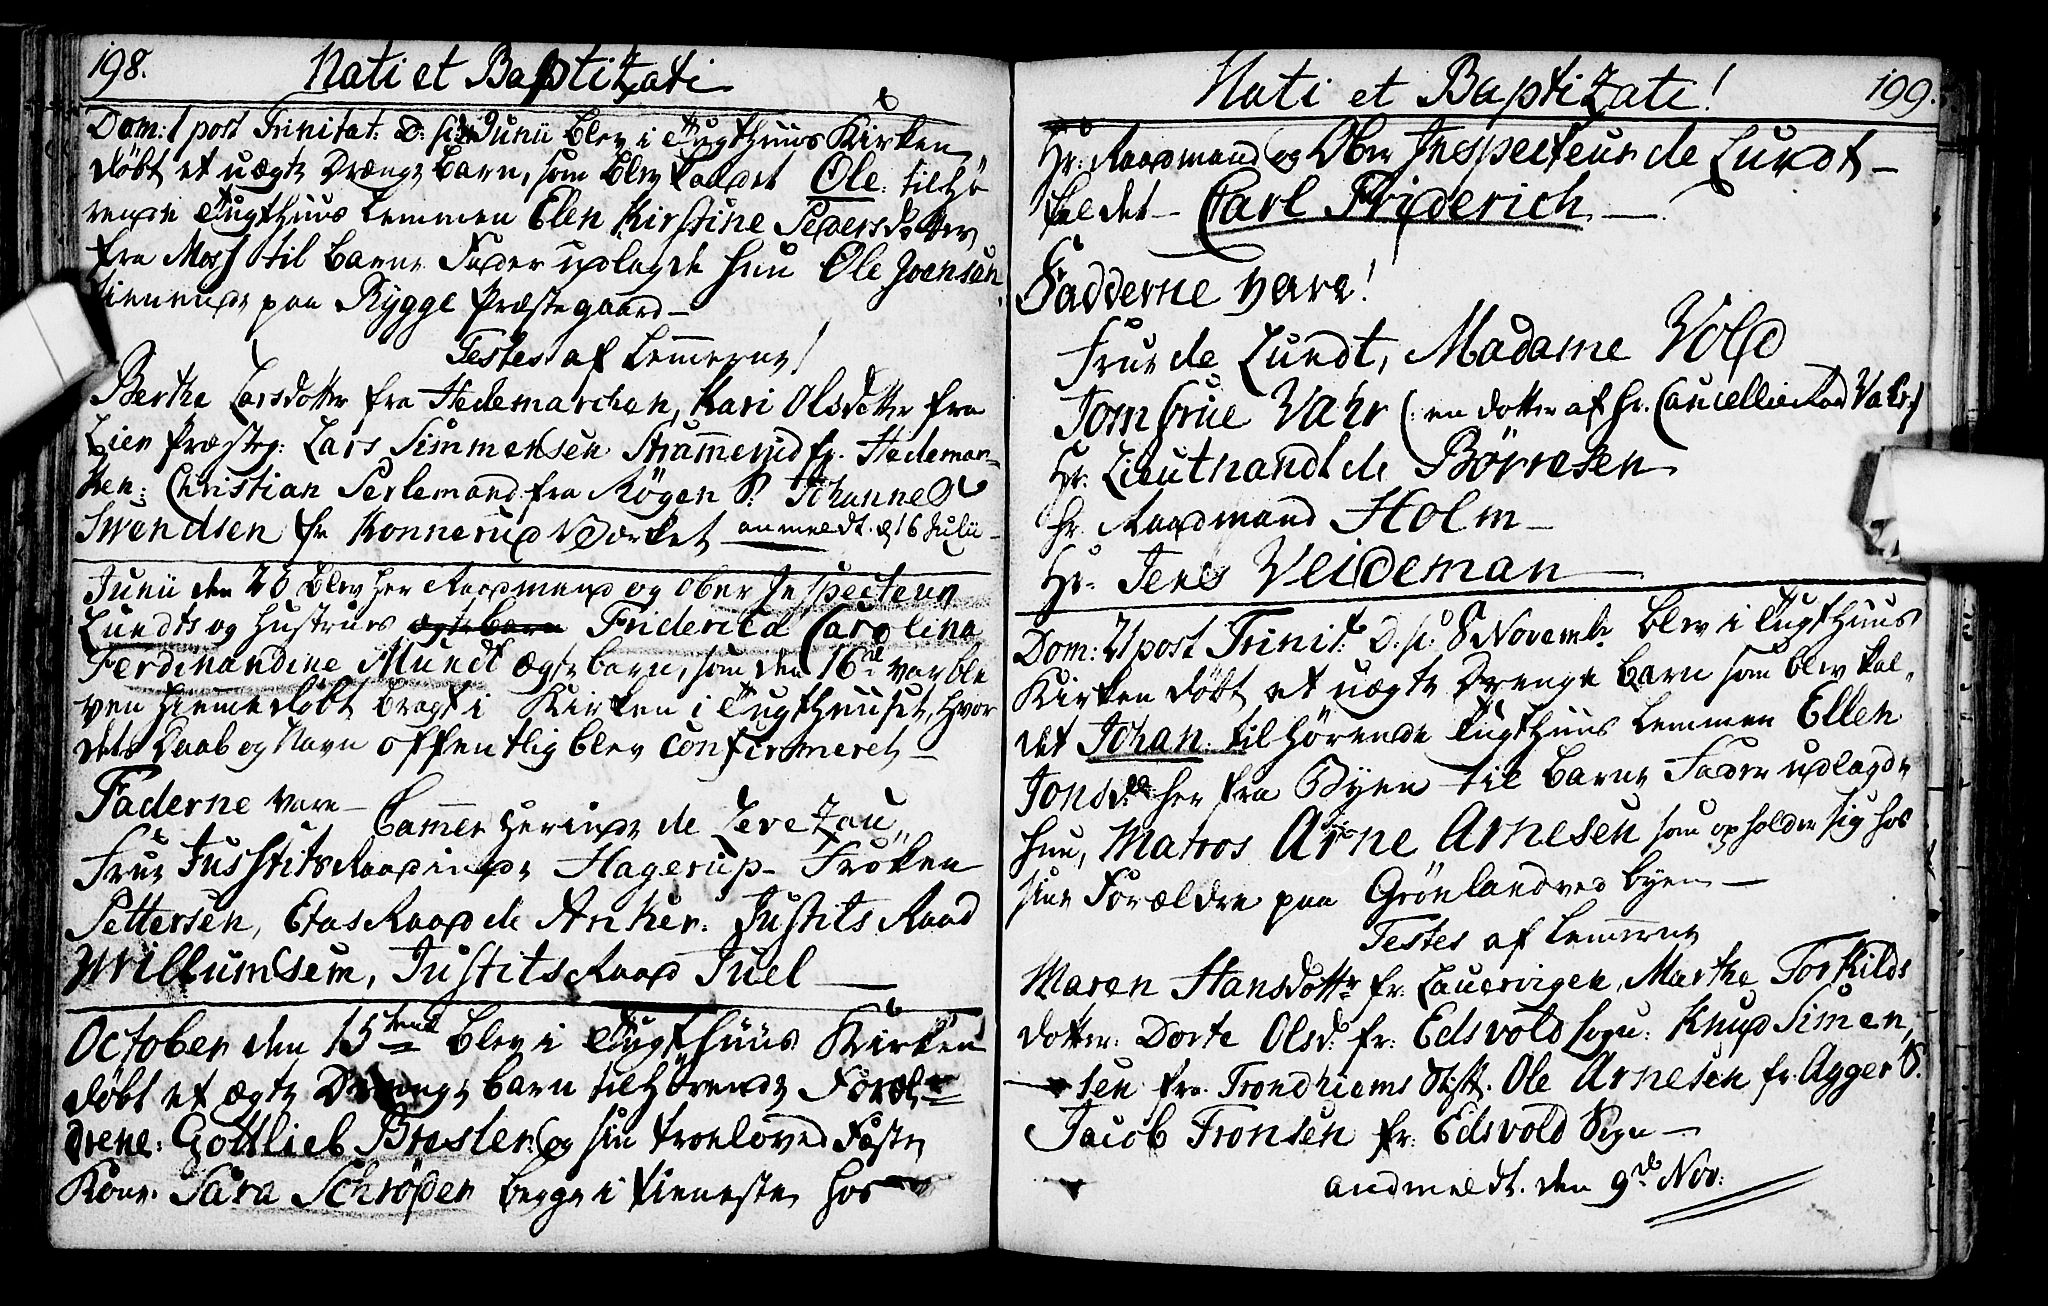 198.
Nati et Baptizati
Dom: 1 post Trinitat: D: Junii blev i Tugthuus Kirken
døbt et uægte Drænge barn, som blev kaldet Ole: tilhø
rende Tugthuus Lemmen Elen Kirstine Pedersdotter
fra Moss til barne Fader udlagde hun Ole Joensen
tienende paa Rygge Præstegaard —
Testes af Lemmerne!
Berthe Larsdotter fra Hedemarchen, Kari Olsdotter fra
Lier Præsteg: Lars Simmensen Strammerud fr. Hedemar-
ken: Christian Perlemand fra Røgen S: Johannes
Swendsen fr Konnerud Værket anmeldt. d 16 Julii —
Junii den 26 blev her Raadmand og Ober Inspecteur
Lundts og Hustrues ægte barn Friderica Carolina
Ferdinandine Mundt ægte barn, som den 16de var ble
ven hiemmedøbt bragt i Kirken i Tugthuuset, hvor
dets Daab og Navn offentlig blev confirmeret —
Faderne vare —
Cammer Herinde de Levetzau,
Frue Justits Raadinde Hagerup — Frøken
Pettersen, Etas Raad de Anker: Justits Raad
Willumsem, Justits Raad Juel —
October den 15tende blev i Tugthuus Kirken
døbt et ægte Drænge barn tilhørende Foræl-
drene: Gottlieb Bresler og sin troeloved Fæste
Kone: Sara Schrøder begge i tieneste hos
199.
Nati et Baptizati!
Hr: Raadmand og Ober Inspecteur de Lundt —
kaldet — Carl Friderich —
Fadderne vare!
Frue de Lundt, Madame Vold
Jomfrue Vahr (: en dotter af Hr. Cancellie Rad Vahr:)
Hr. Lieutnandt de Børresen
Hr. Raadmand Holm —
Hr. Jens Veideman —
Dom: 21 post Trinit: D: s: 8 Novembr blev i Tugthuus
Kirken døbt et uægte Drenge barn som blev kal-
det Johan: tilhørende Tugthuus Lemmen Ellen
Jonsdr her fra Byen til barne Fader udlagde
hun, Matros Arne Arnesen som opholder sig hos
sine Forældre paa Grønland ved byen —
Testes af Lemmerne
Maren Hansdottr fr: Lauervigen, Marthe Torkilds
dotter: Dorte Olsd: fr: Edsvold sogn: Knud Simen-
sen fra Trondhiems Stift. Ole Arnesen fr. Agger S.
Jacob Tronsen fr: Edsvold Sogn —
andmeldt. den 9de Nov: